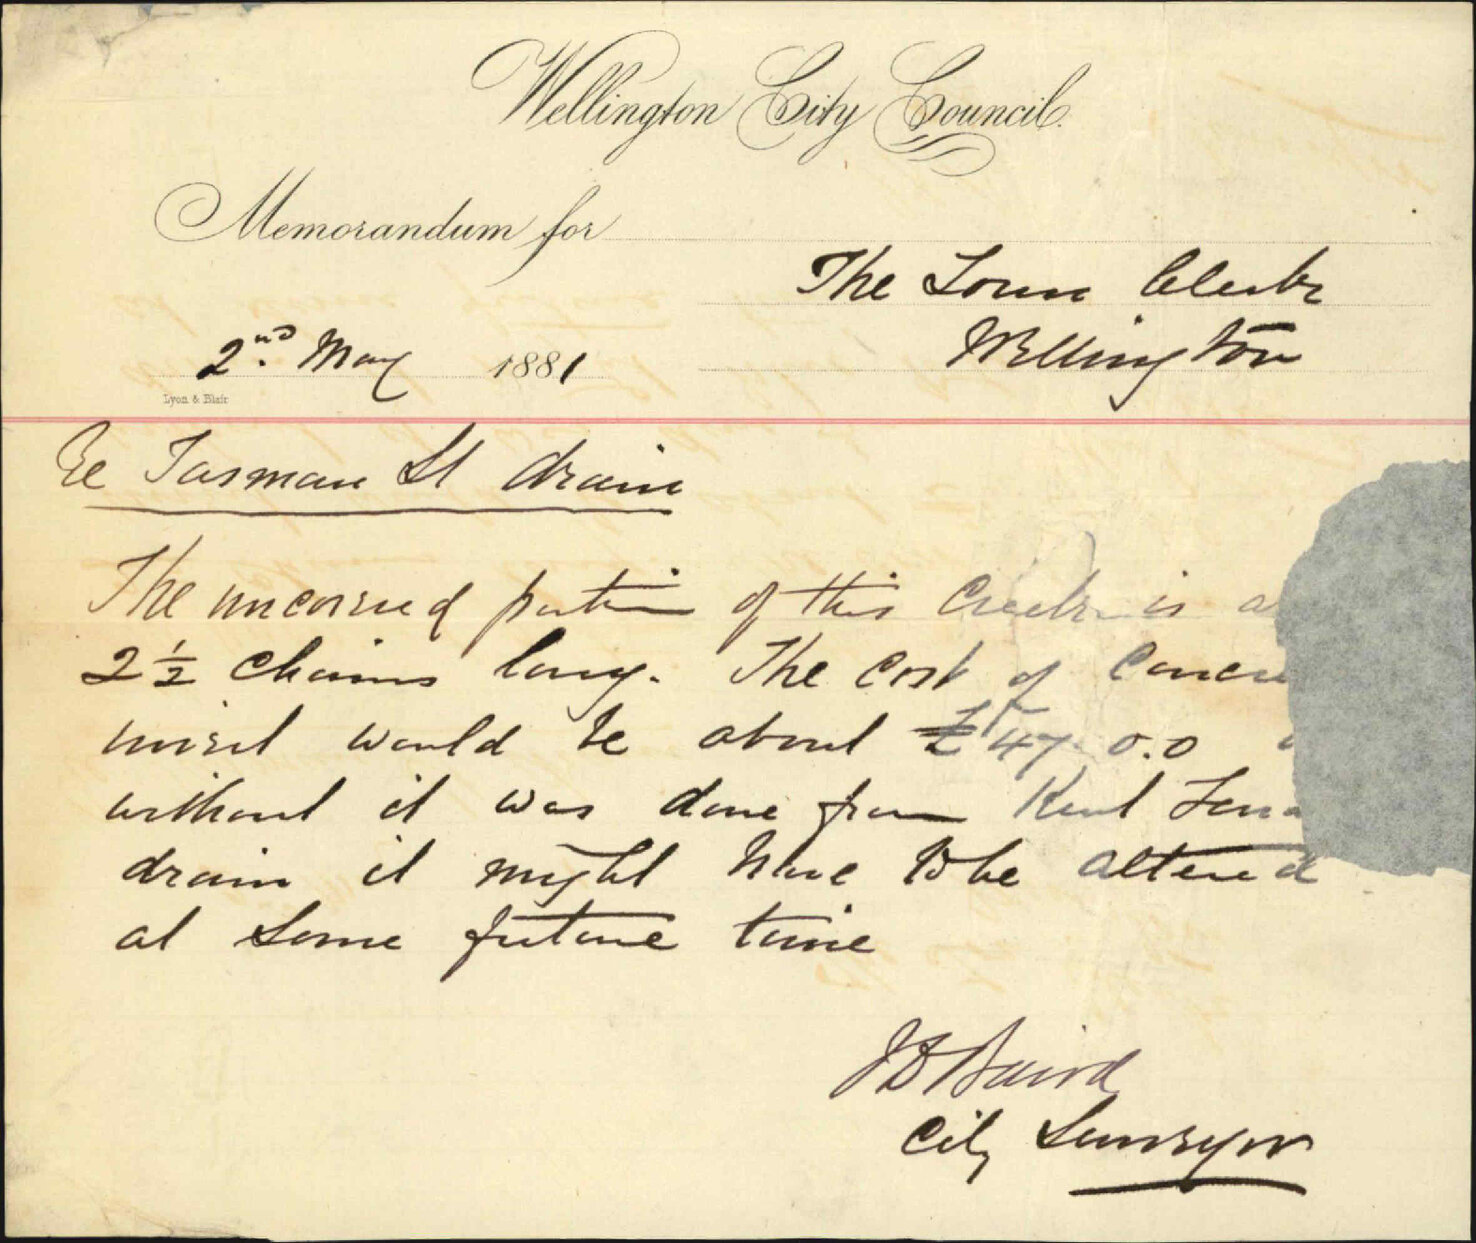 Wellington City Council.
Memorandum for
The Town Clerk
Wellington
2nd. May 1881
Lyon & Blair
Re Tasman St drain
The uncovered portion of this Creek is a
2 1/2 Chains long. The Cost of Concre
invert would be about £47.0.0
without it was done from Kent Terra
drain it might have to be altered
at some future time
J D Baird
City Surveyor